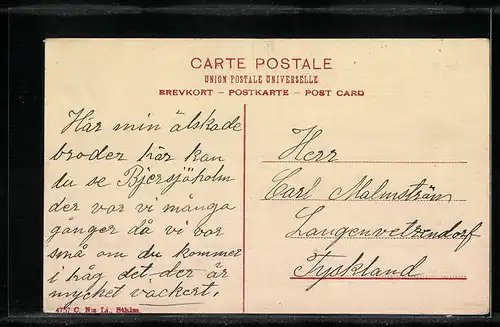 CARTE POSTALE
UNION POSTALE UNIVERSELLE
BREVKORT – POSTKARTE – POST CARD
Här min älskade
broder här kan
du se Bjersjöholm
der var vi många
gånger då vi var
små om du kommer
i håg det der är
mycket vackert.
Herr
Carl Malmström
Langenvetzendorf
Tyskland
4757 C. N:s Lj., Sthlm